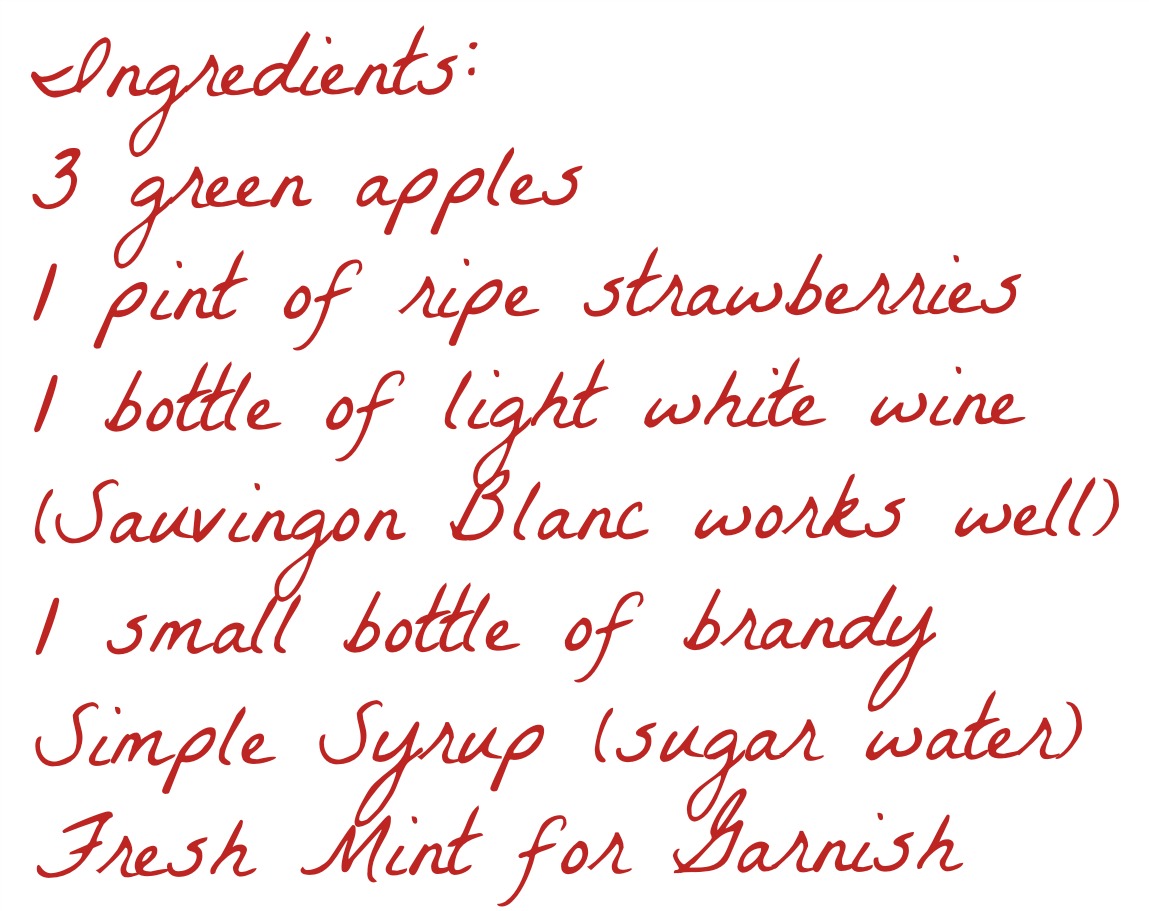 Ingredients:
3 green apples
1 pint of ripe strawberries
1 bottle of light white wine
(Sauvingon Blanc works well)
1 small bottle of brandy
Simple Syrup (sugar water)
Fresh Mint for Garnish